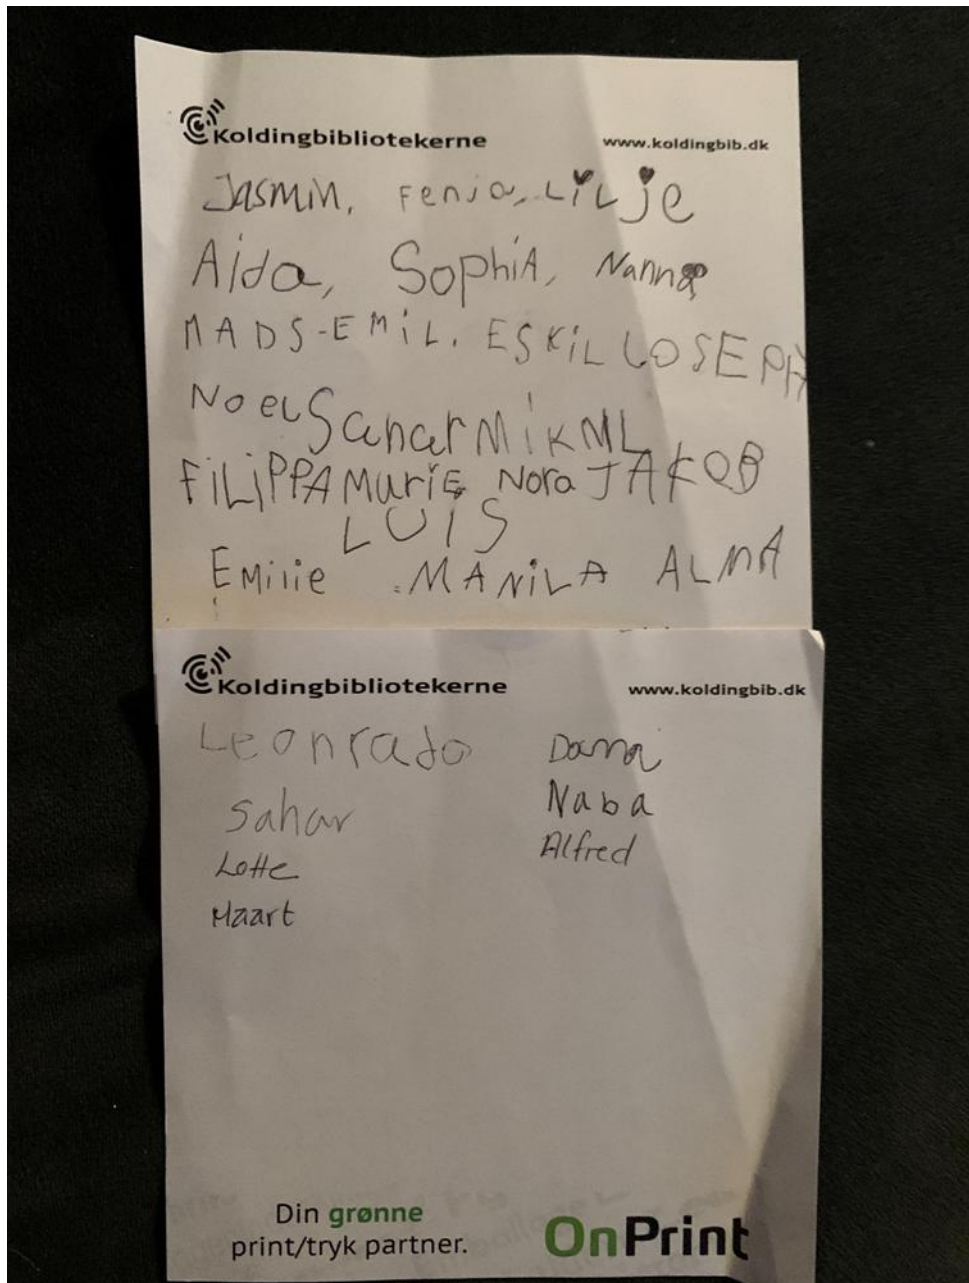 Koldingbibliotekerne www.koldingbib.dk
Jasmin, Fenja, LiLje
Aida, SophiA, Nanna
MADS-EMiL. ESKiL LOSEPH
NoeL Sahar MiKML
FiLiPPA MariE Nora JAKOB
LUIS
Emilie MANiLA ALMA
Koldingbibliotekerne www.koldingbib.dk
Leonrado Dana
Sahar Naba
Lotte Alfred
Maart
Din grønne
print/tryk partner. OnPrint